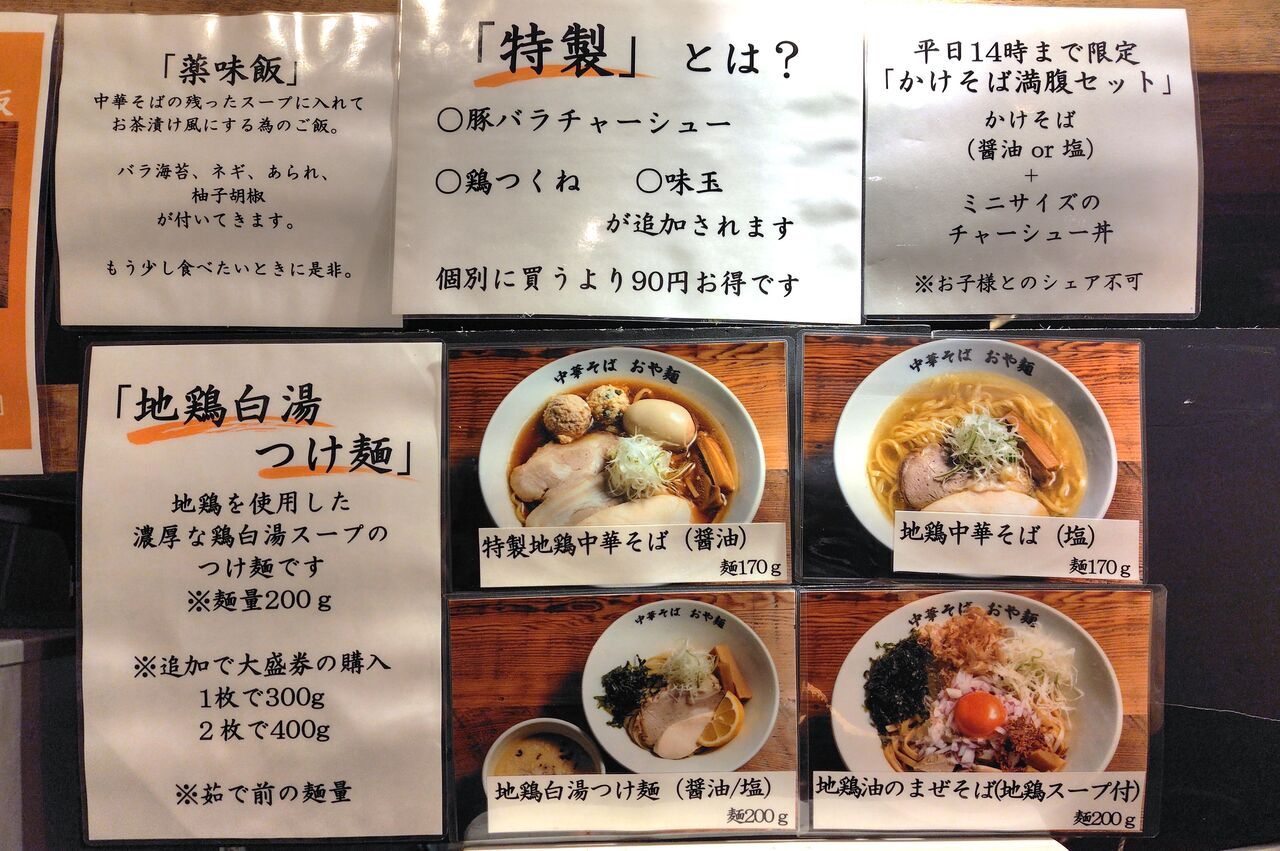 「薬味飯」
中華そばの残ったスープに入れて
お茶漬け風にする為のご飯。
バラ海苔、ネギ、あられ、
柚子胡椒
が付いてきます。
もう少し食べたいときに是非。
「特製」とは？
○豚バラチャーシュー
○鶏つくね ○味玉
が追加されます
個別に買うより90円お得です
平日14時まで限定
「かけそば満腹セット」
かけそば
（醤油 or 塩）
+
ミニサイズの
チャーシュー丼
※お子様とのシェア不可
「地鶏白湯
つけ麺」
地鶏を使用した
濃厚な鶏白湯スープの
つけ麺です
※麺量200ｇ
※追加で大盛券の購入
1枚で300g
２枚で400g
※茹で前の麺量
中華そば おや麺
特製地鶏中華そば（醤油）
麺170ｇ
中華そば おや麺
地鶏中華そば（塩）
麺170ｇ
中華そば おや麺
地鶏白湯つけ麺（醤油/塩）
麺200ｇ
中華そば おや麺
地鶏油のまぜそば(地鶏スープ付)
麺200ｇ